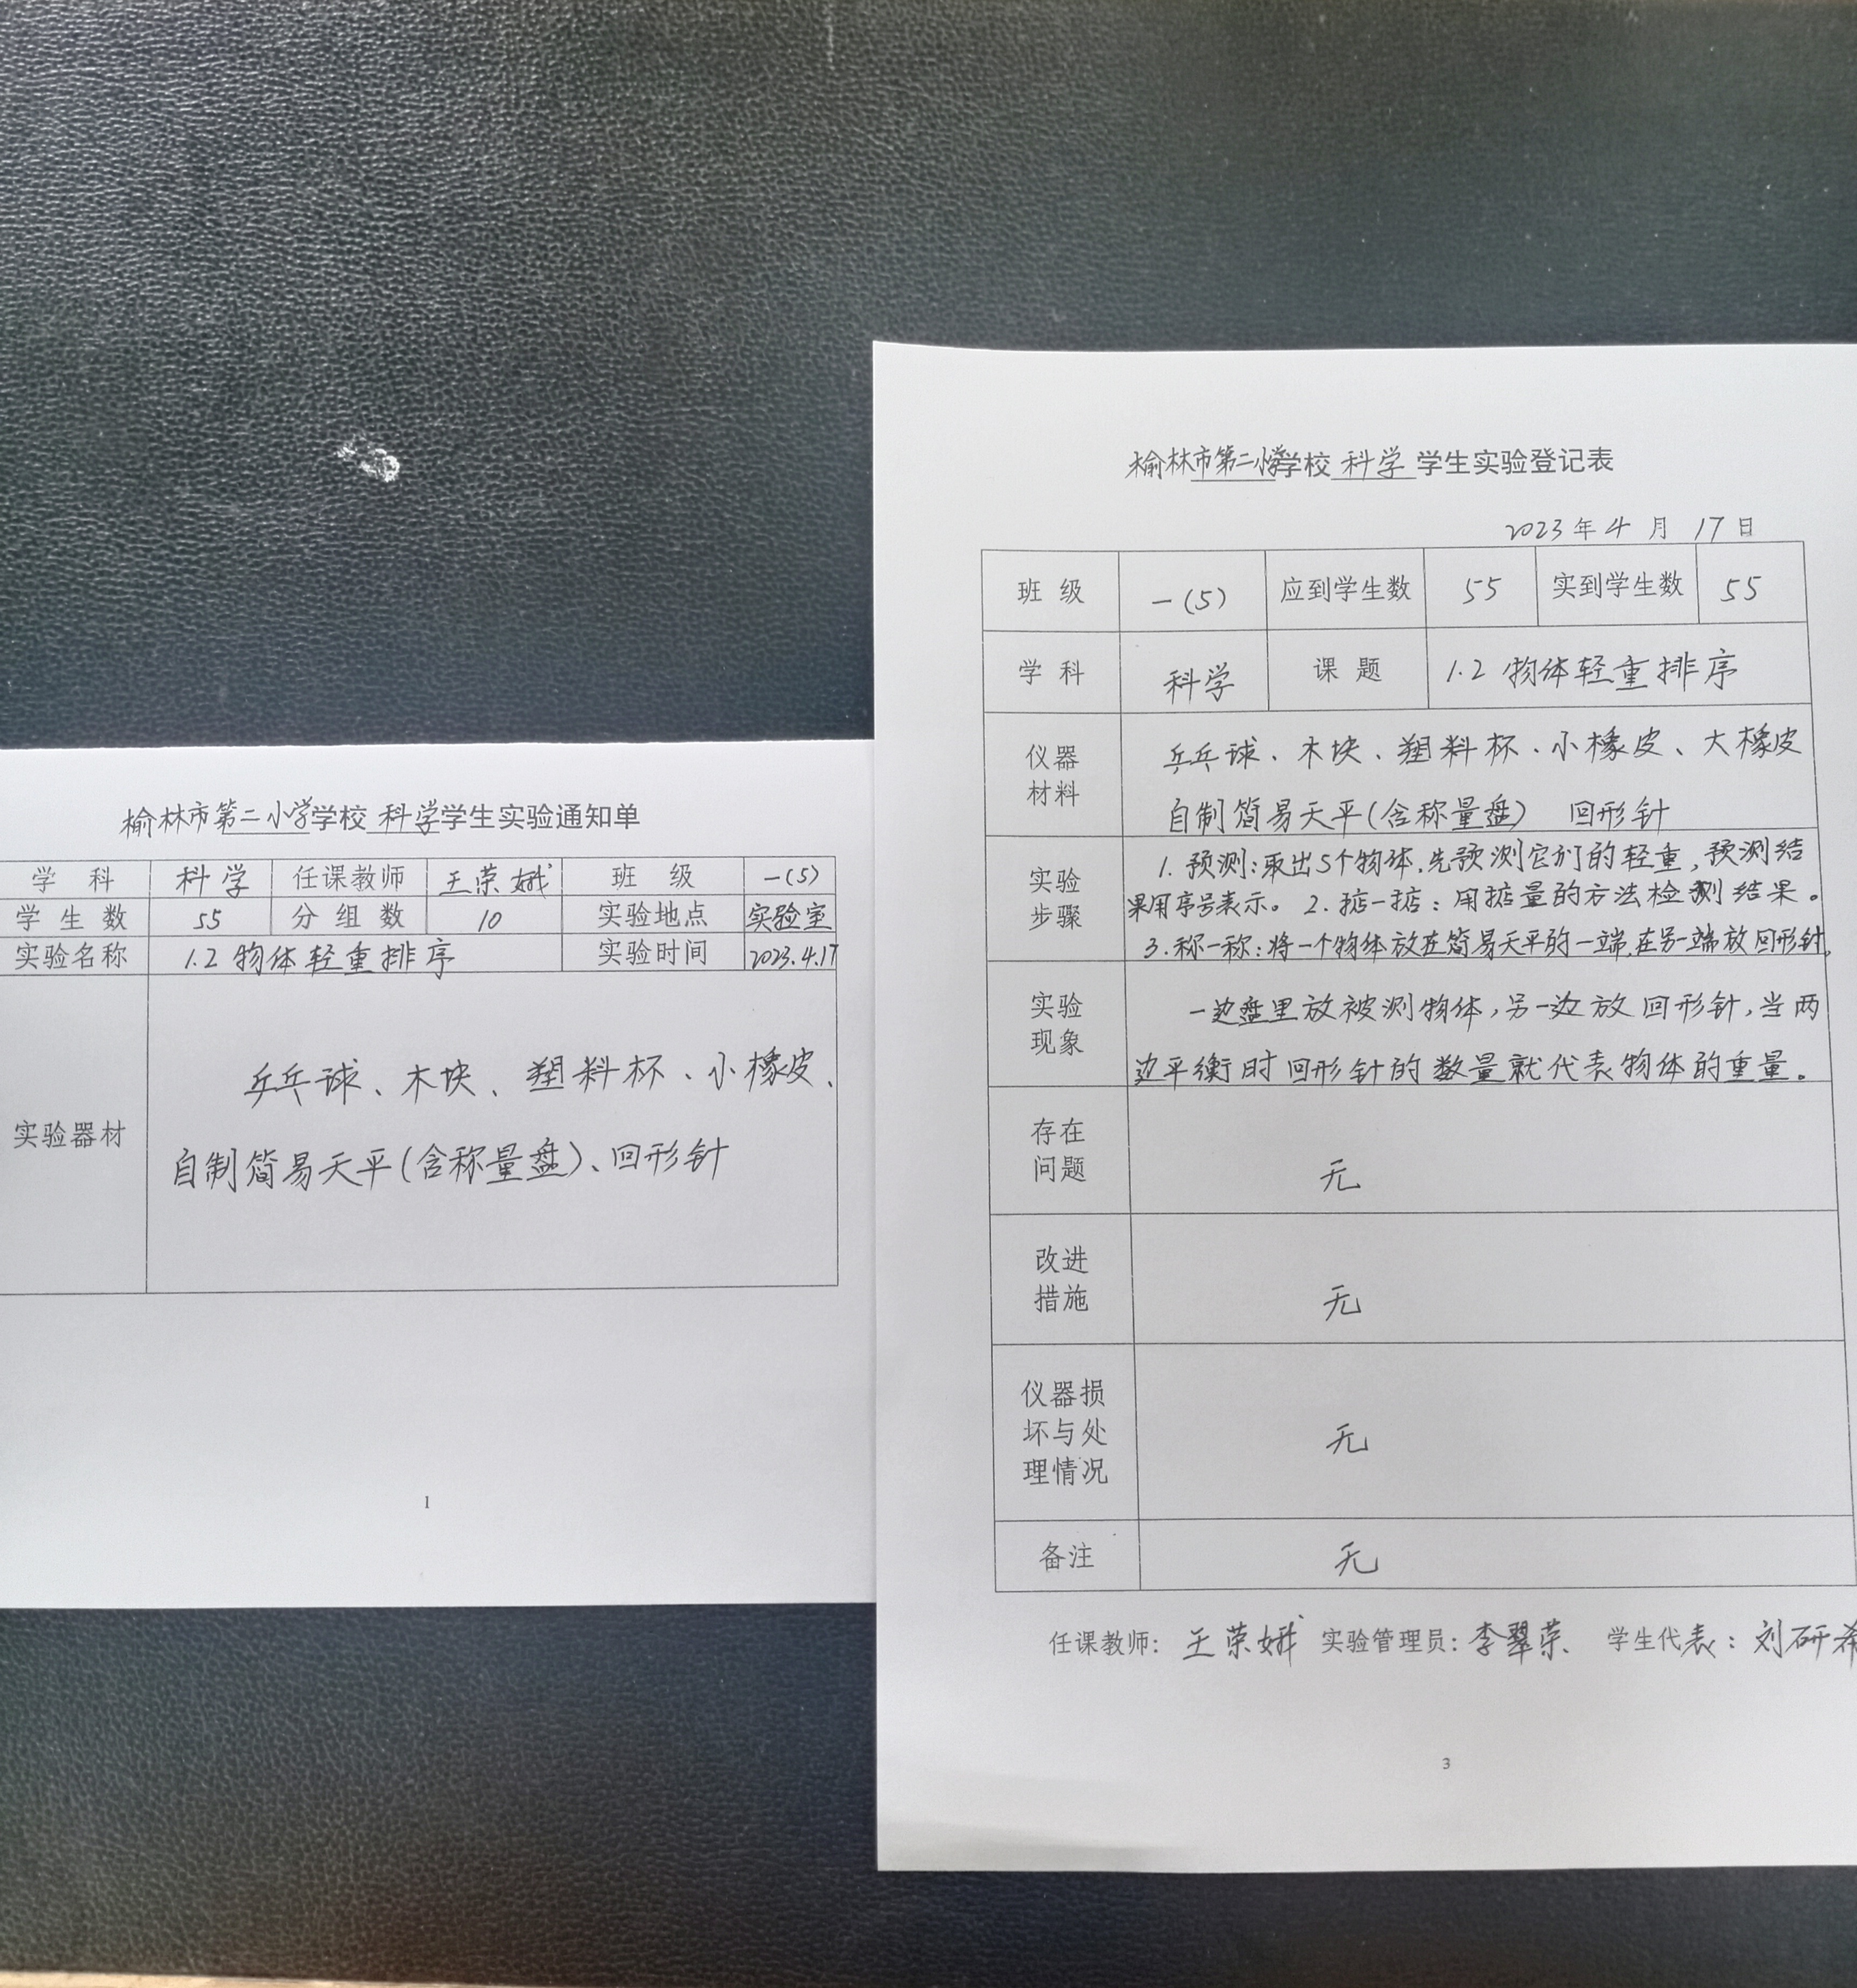 榆林市第二小学学校 科学 学生实验通知单
学 科 科学 任课教师 王荣娥 班 级 一(5)
学生数 55 分组数 10 实验地点 实验室
实验名称 1.2 物体轻重排序 实验时间 2023.4.17
实验器材
乒乓球、木块、塑料杯、小橡皮、
自制简易天平(含称量盘)、回形针
1
榆林市第二小学学校 科学 学生实验登记表
2023 年 4 月 17 日
班 级 一(5) 应到学生数 55 实到学生数 55
学 科 科学 课 题 1.2 物体轻重排序
仪器
材料
乒乓球、木块、塑料杯、小橡皮、大橡皮
自制简易天平(含称量盘) 回形针
实验
步骤
1. 预测:取出5个物体,先预测它们的轻重,预测结
果用序号表示。 2. 掂一掂:用掂量的方法检测结果。
3. 称一称:将一个物体放在简易天平的一端,在另一端放回形针。
实验
现象
一边盘里放被测物体,另一边放回形针,当两
边平衡时回形针的数量就代表物体的重量。
存在
问题
无
改进
措施
无
仪器损
坏与处
理情况
无
备注 无
任课教师: 王荣娥 实验管理员: 李翠荣 学生代表: 刘研希
3